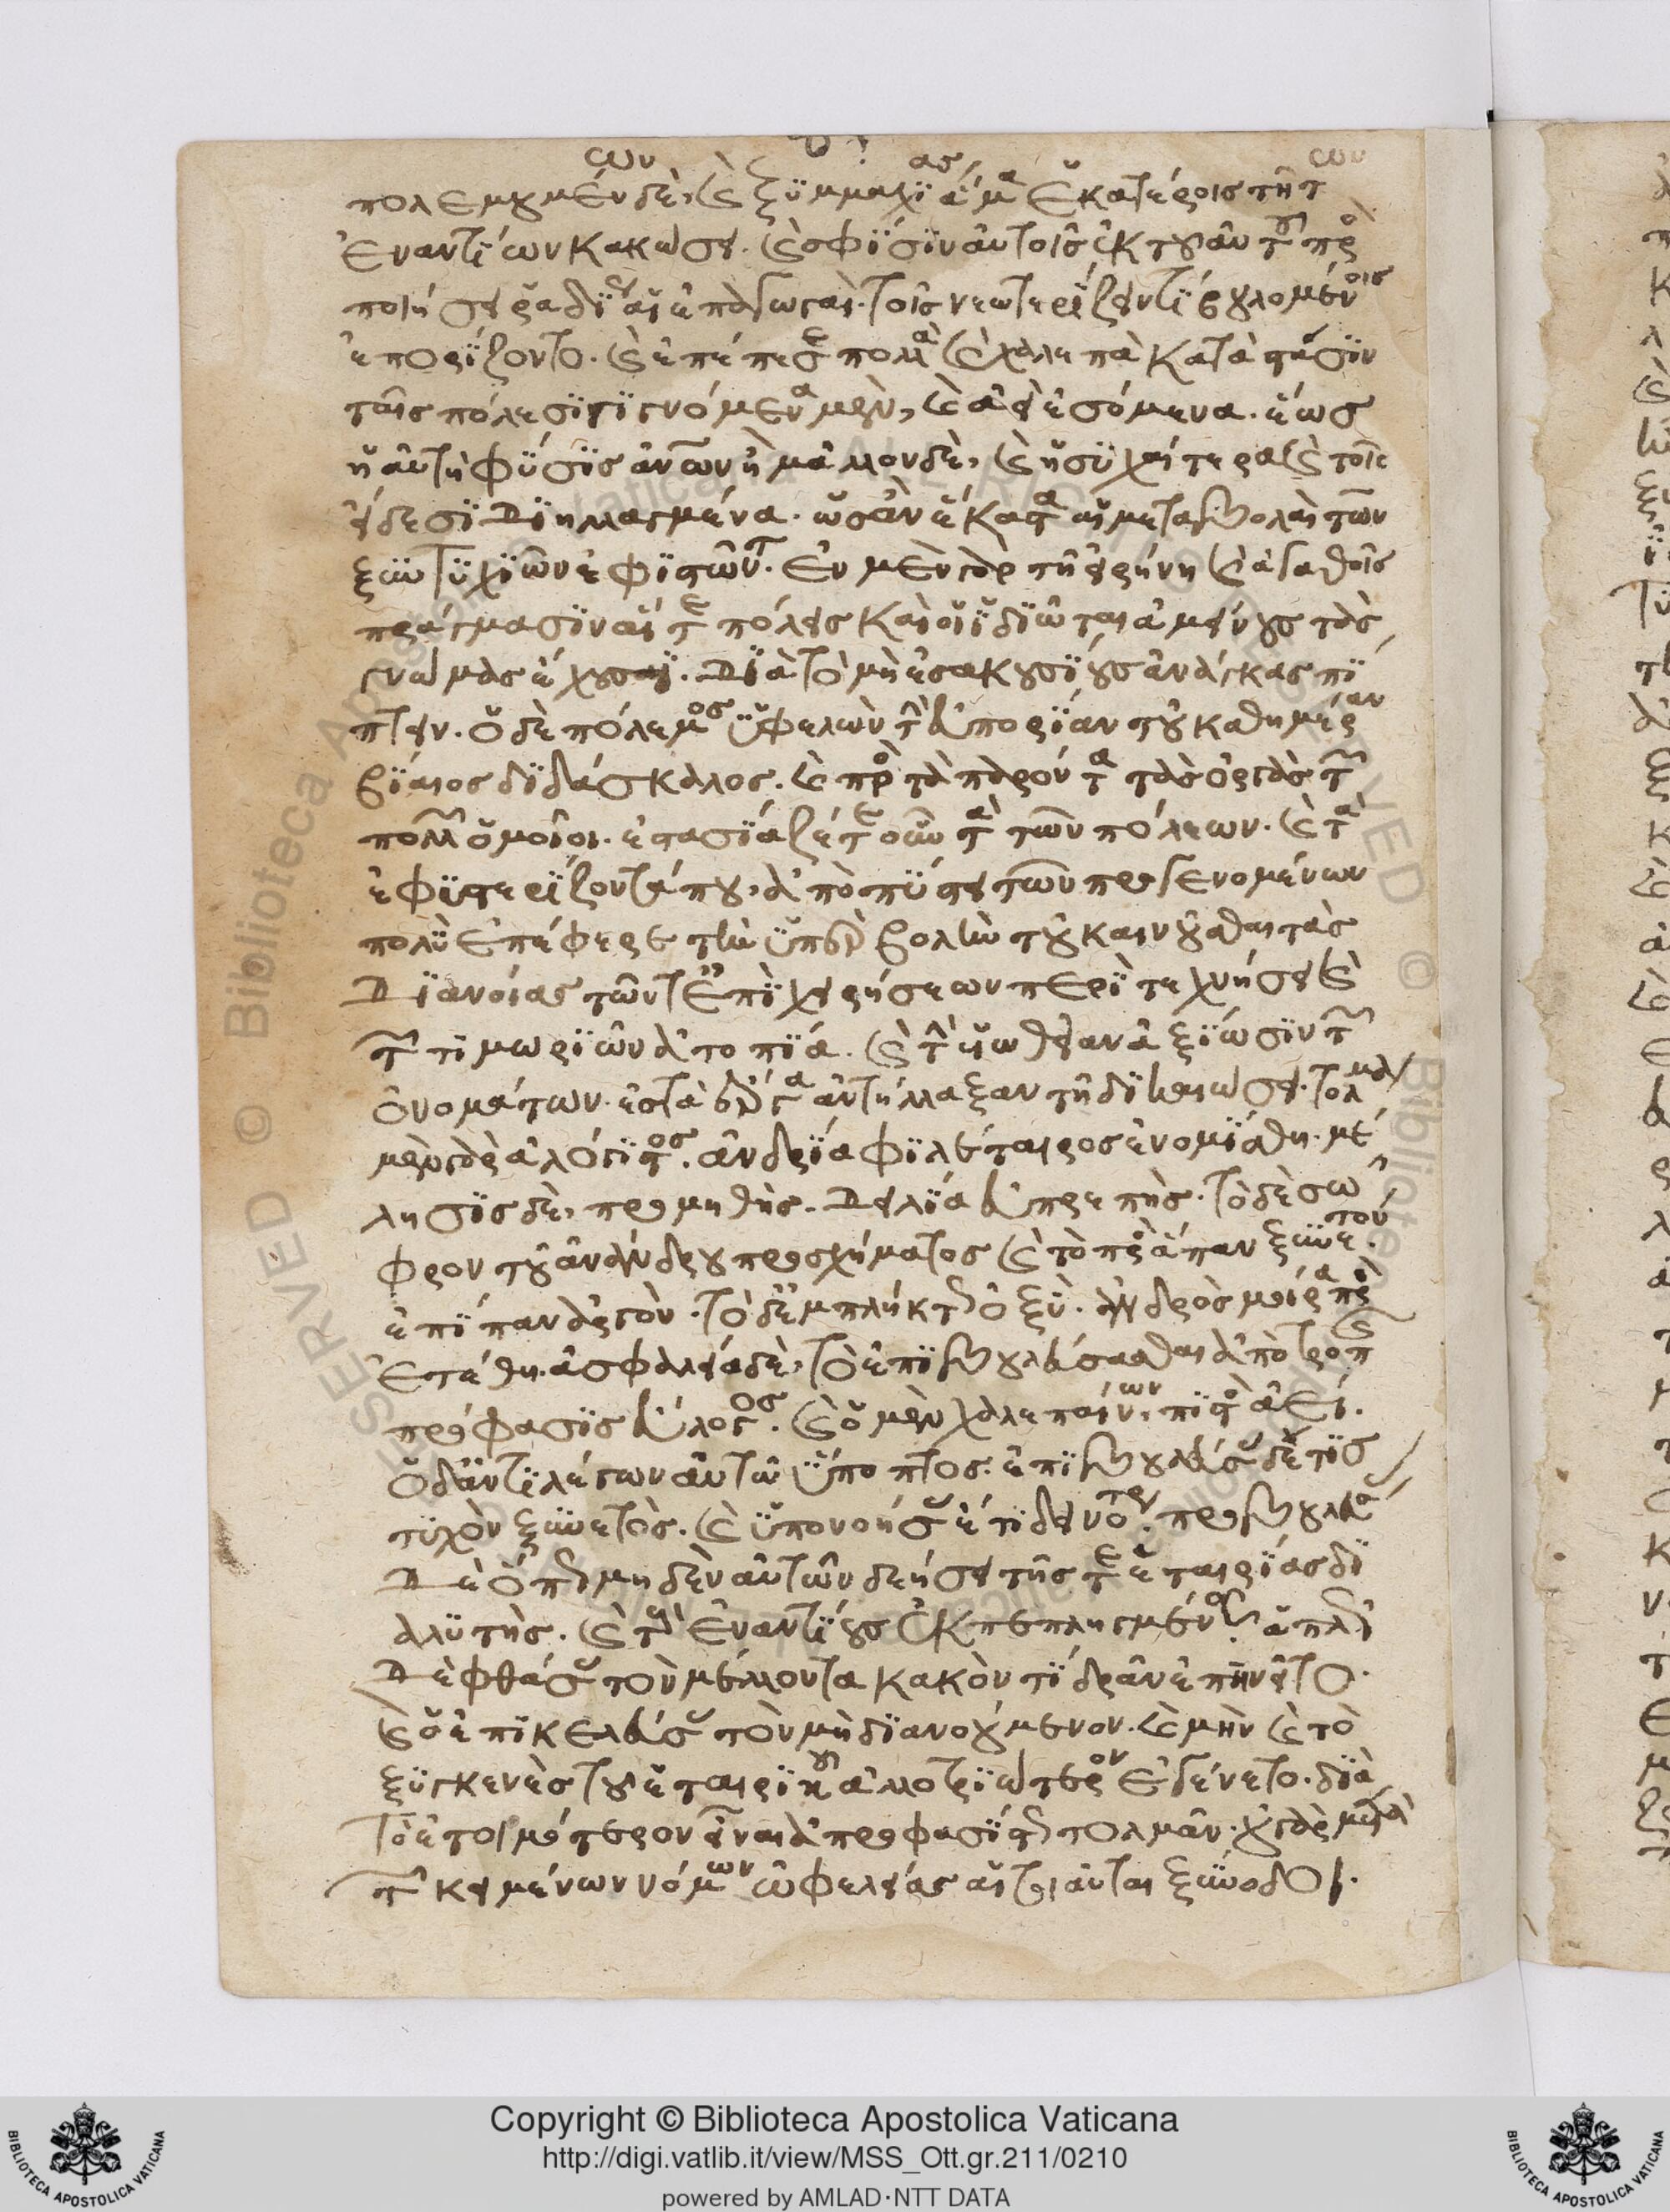 πολεμουμένων δὲ, καὶ ξυμμαχίας ἅμα ἑκατέροις τῇ τῶν
ἐναντίων κακώσει. καὶ σφίσιν αὐτοῖς ἐκ τοῦ αὐτοῦ προσ
ποιήσει ῥαδίως αἱ ἐπαγωγαὶ τοῖς νεωτερίζειν τι βουλομένοις
ἐπορίζοντο. καὶ ἐπέπεσε πολλὰ καὶ χαλεπὰ κατὰ στάσιν
ταῖς πόλεσι γιγνόμενα μὲν, καὶ ἀεὶ ἐσόμενα. ἕως
ἡ αὐτὴ φύσις ἀνθρώπων ᾖ μᾶλλον δὲ, καὶ ἡσυχαίτερα καὶ τοῖς
εἴδεσι διηλλαγμένα. ὡς ἂν ἕκασται αἱ μεταβολαὶ τῶν
ξυντυχιῶν ἐφιστῶνται. ἐν μὲν γὰρ τῇ εἰρήνῃ καὶ ἀγαθοῖς
πράγμασιν αἵ τε πόλεις καὶ οἱ ἰδιῶται ἀμείνους τὰς
γνώμας ἔχουσι. διὰ τὸ μὴ ἐς ἀκουσίους ἀνάγκας πί
πτειν. ὁ δὲ πόλεμος ὑφελὼν τὴν εὐπορίαν τοῦ καθημέραν
βίαιος διδάσκαλος. καὶ πρὸς τὰ παρόντα τὰς ὀργὰς τῶν
πολλῶν ὁμοιοῖ. ἐστασίαζέ τε οὖν τὰ τῶν πόλεων. καὶ τὰ
ἐφυστερίζοντά που, ἀποπύστει τῶν προγενομένων
πολὺ ἐπέφερε τὴν ὑπερβολὴν τοῦ καινοῦσθαι τὰς
διανοίας τῶν τ' ἐπιχειρήσεων περιτεχνήσει καὶ
τῶν τιμωριῶν ἀτοπίᾳ. καὶ τὴν εἰωθυῖαν ἀξίωσιν τῶν
ὀνομάτων ἐς τὰ ἔργα ἀντήλλαξαν τῇ δικαιώσει. τόλμα
μὲν γὰρ ἀλόγιστος. ἀνδρία φιλέταιρος ἐνομίσθη. μέλ
λησις δὲ, προμηθὴς. δειλία εὐπρεπὴς. τὸ δὲ σῶ
φρον τοῦ ἀνάνδρου προσχήματος καὶ τὸ πρὸς ἅπαν ξυνετόν
ἐπὶ πᾶν ἀργόν. τὸ δ' ἐμπλήκτως ὀξὺ. ἀνδρὸς μοίρᾳ προσ
ετέθη. ἀσφαλείᾳ δὲ, τὸ ἐπιβουλεύσασθαι ἀποτροπῆς
πρόφασις εὔλογος. καὶ ὁ μὲν χαλεπαίνων, πιστὸς ἀεί.
ὁ δ' ἀντιλέγων αὐτῷ ὕποπτος. ἐπιβουλεύσας δέ τις
τυχὼν ξυνετὸς. καὶ ὑπονοήσας ἔτι δεινότερος. προβουλεύσας
δὲ ὅπως μηδὲν αὐτῶν δεήσει τῆς τε ἑταιρίας δι
αλυτὴς. καὶ τοὺς ἐναντίους ἐκπεπληγμένος. ἁπλῶς
δὲ ὁ φθάσας τὸν μέλλοντα κακόν τι δρᾶν ἐπῃνεῖτο.
καὶ ὁ ἐπικελεύσας τὸν μὴ διανοούμενον. καὶ μὴν καὶ τὸ
ξυγγενὲς τοῦ ἑταιρικοῦ ἀλλοτριώτερον ἐγένετο. διὰ
τὸ ἑτοιμότερον εἶναι ἀπροφασίστως τολμᾶν. οὐ γὰρ μετὰ
τῶν κειμένων νόμων ὠφελείας αἱ τοιαῦται ξύνοδοι.
Copyright © Biblioteca Apostolica Vaticana
http://digi.vatlib.it/view/MSS_Ott.gr.211/0210
powered by AMLAD·NTT DATA